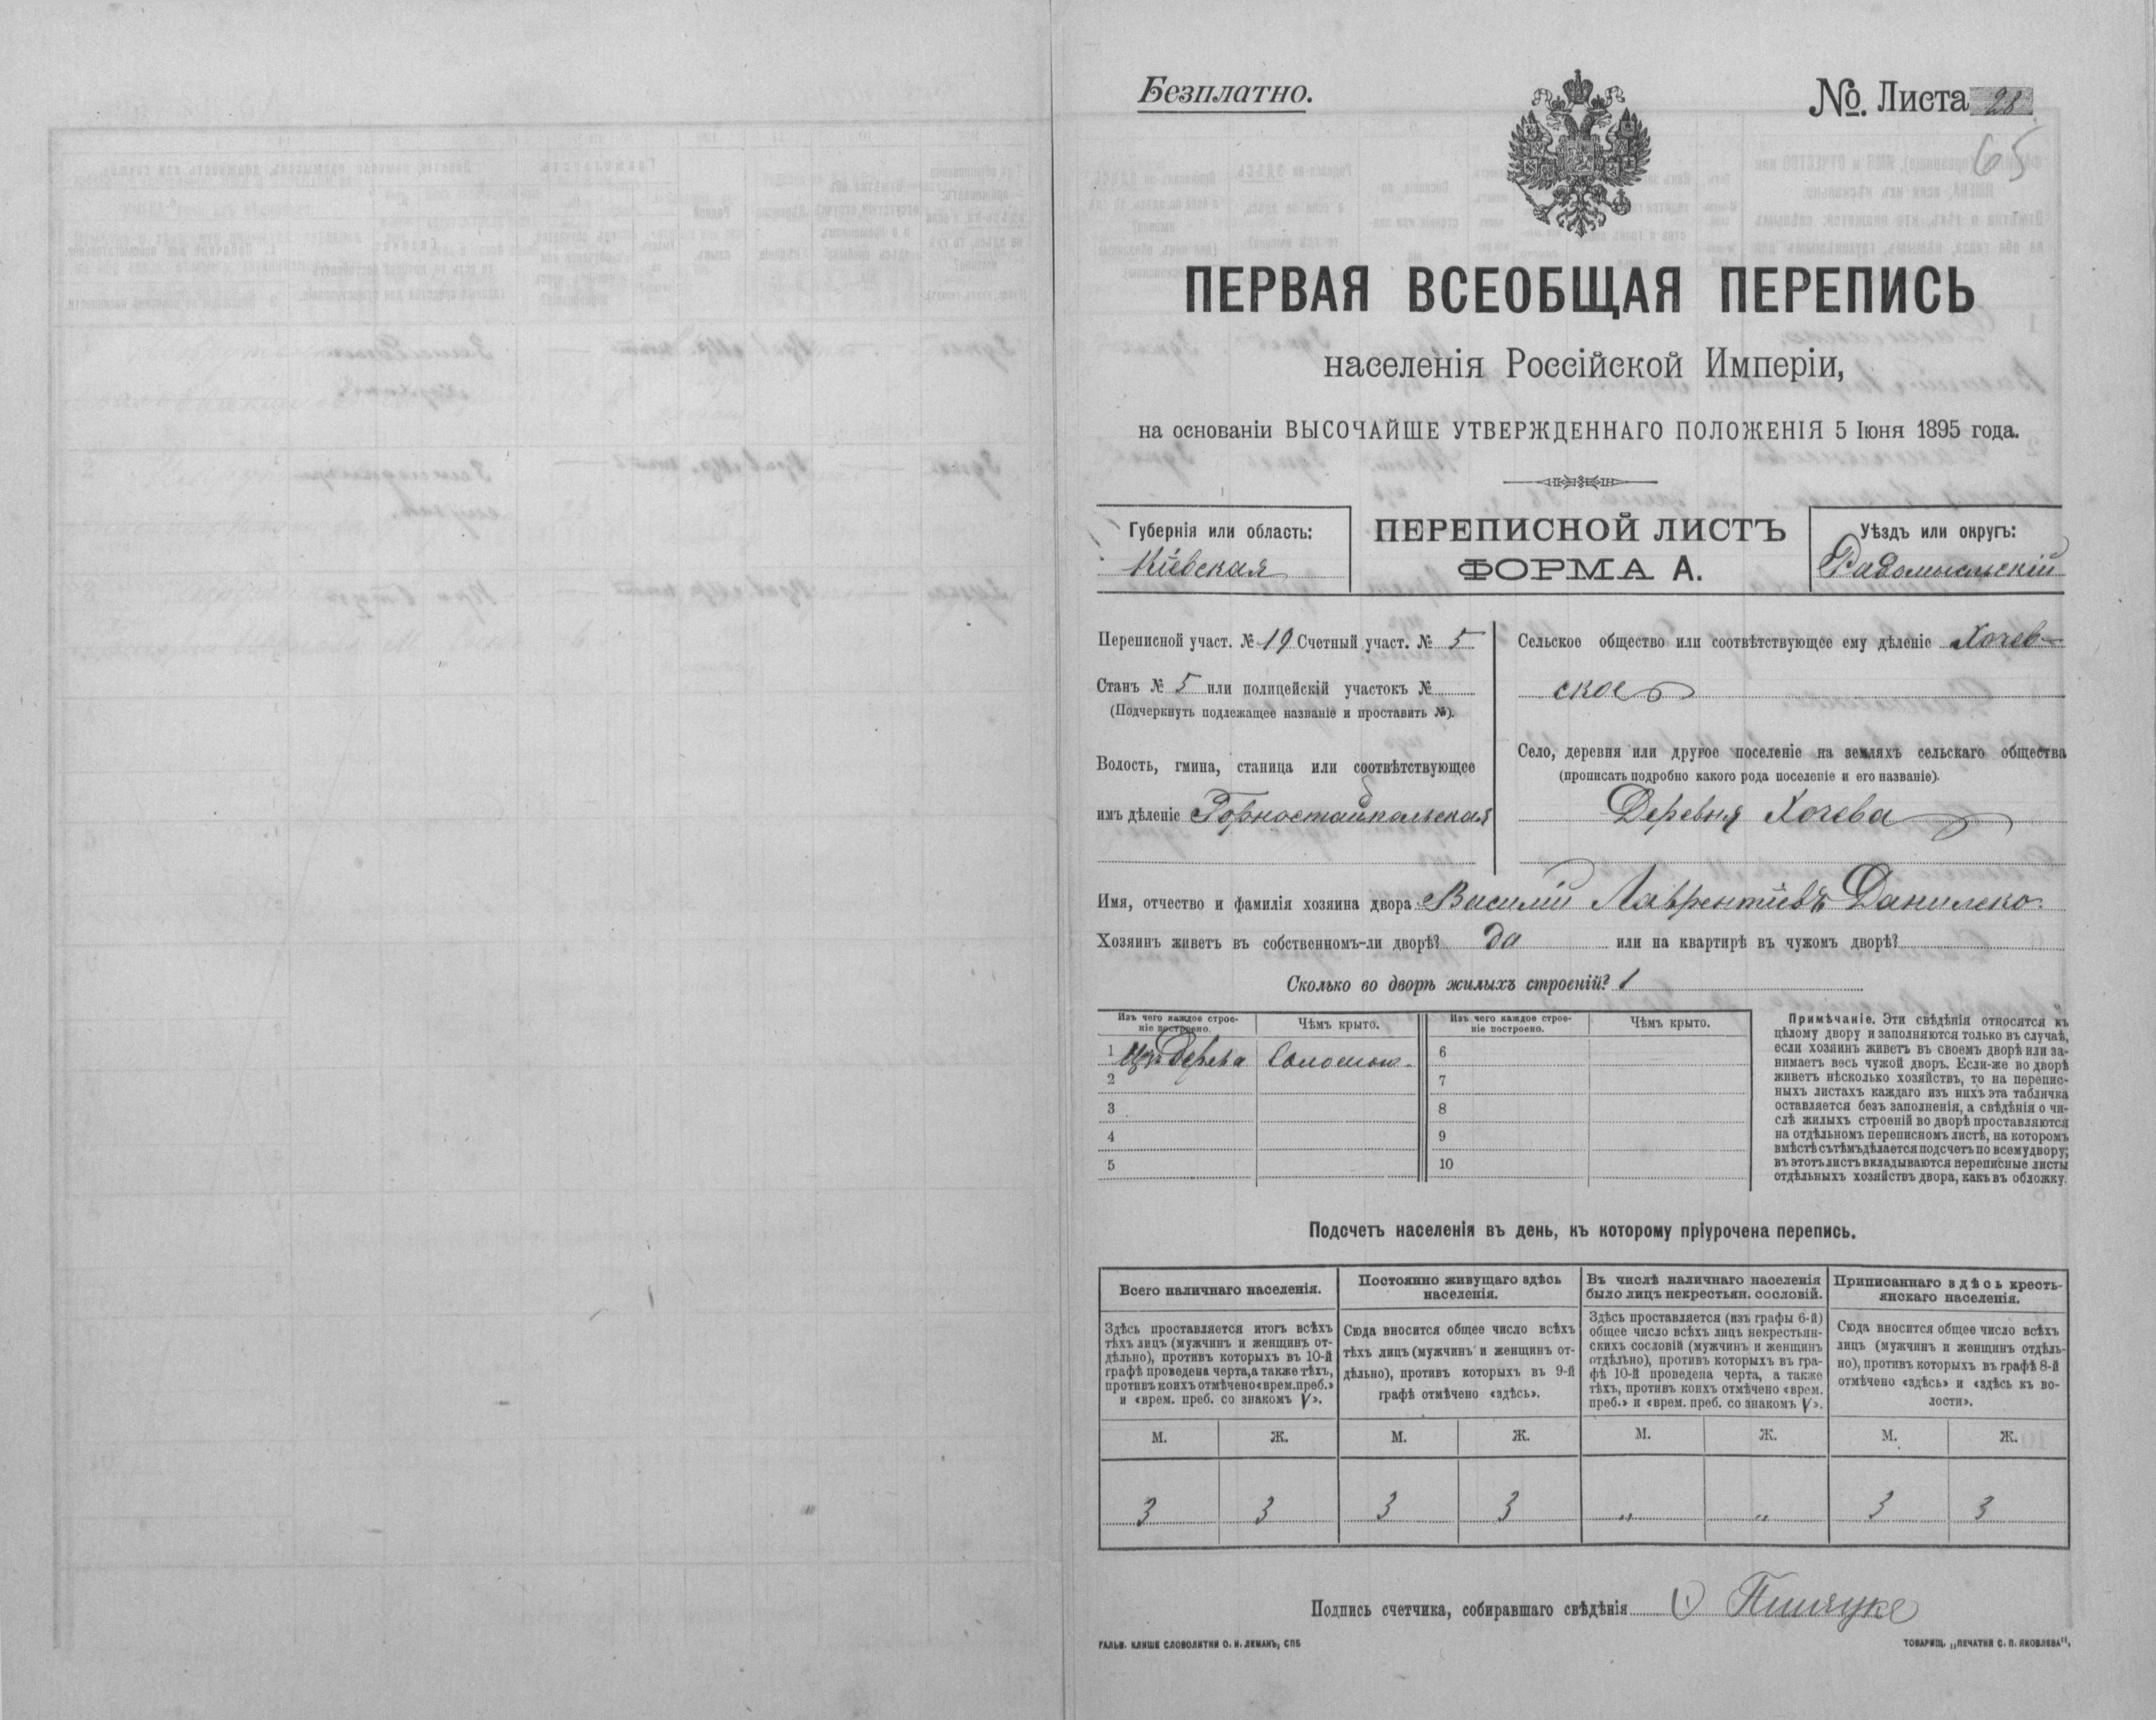 Безплатно.
№. Листа 28
65
ПЕРВАЯ ВСЕОБЩАЯ ПЕРЕПИСЬ
населенія Россійской Имперіи,
на основаніи ВЫСОЧАЙШЕ УТВЕРЖДЕННАГО ПОЛОЖЕНІЯ 5 Іюня 1895 года.
Губернія или область:
Кіевская
ПЕРЕПИСНОЙ ЛИСТЪ
ФОРМА А.
Уѣздъ или округъ:
Радомысльскій
Переписной участ. № 19 Счетный участ. № 5
Станъ № 5 или полицейскій участокъ №
(Подчеркнуть подлежащее названіе и проставить №).
Волость, гмина, станица или соотвѣтствующее
имъ дѣленіе Горностайпольская
Сельское общество или соотвѣтствующее ему дѣленіе Хочев-
ское
Село, деревня или другое поселеніе на земляхъ сельскаго общества
(прописать подробно какого рода поселеніе и его названіе).
Деревня Хочева
Имя, отчество и фамилія хозяина двора Василій Лаврентіевъ Данилеко.
Хозяинъ живетъ въ собственномъ-ли дворѣ? да или на квартирѣ въ чужомъ дворѣ?
Сколько во дворѣ жилыхъ строеній? 1
Изъ чего каждое строе-
ніе построено.
Чѣмъ крыто.
Изъ чего каждое строе-
ніе построено.
Чѣмъ крыто.
1 Изъ дерева Соломою. 6
2 7
3 8
4 9
5 10
Примѣчаніе. Эти свѣдѣнія относятся къ
цѣлому двору и заполняются только въ случаѣ,
если хозяинъ живетъ въ своемъ дворѣ или за-
нимаетъ весь чужой дворъ. Если-же во дворѣ
живетъ нѣсколько хозяйствъ, то на перепис-
ныхъ листахъ каждаго изъ нихъ эта табличка
оставляется безъ заполненія, а свѣдѣнія о чи-
слѣ жилыхъ строеній во дворѣ проставляются
на отдѣльномъ переписномъ листѣ, на которомъ
вмѣстѣ съ тѣмъ дѣлается подсчетъ по всему двору;
въ этотъ листъ вкладываются переписные листы
отдѣльныхъ хозяйствъ двора, какъ въ обложку.
Подсчетъ населенія въ день, къ которому пріурочена перепись.
Всего наличнаго населенія.
Здѣсь проставляется итогъ всѣхъ
тѣхъ лицъ (мужчинъ и женщинъ от-
дѣльно), противъ которыхъ въ 10-й
графѣ проведена черта, а также тѣхъ,
противъ коихъ отмѣчено «врем. преб.»
и «врем. преб. со знакомъ V».
Постоянно живущаго здѣсь
населенія.
Сюда вносится общее число всѣхъ
тѣхъ лицъ (мужчинъ и женщинъ от-
дѣльно), противъ которыхъ въ 9-й
графѣ отмѣчено «здѣсь».
Въ числѣ наличнаго населенія
было лицъ некрестьян. сословій.
Здѣсь проставляется (изъ графы 6-й)
общее число всѣхъ лицъ некрестьян-
скихъ сословій (мужчинъ и женщинъ
отдѣльно), противъ которыхъ въ гра-
фѣ 10-й проведена черта, а также
тѣхъ, противъ коихъ отмѣчено «врем.
преб.» и «врем. преб. со знакомъ V».
Приписаннаго здѣсь кресть-
янскаго населенія.
Сюда вносится общее число всѣхъ
лицъ (мужчинъ и женщинъ отдѣль-
но), противъ которыхъ въ графѣ 8-й
отмѣчено «здѣсь» и «здѣсь къ во-
лости».
М. Ж. М. Ж. М. Ж. М. Ж.
3 3 3 3 „ „ 3 3
Подпись счетчика, собиравшаго свѣдѣнія
ГАЛЬВ. КЛИШЕ СЛОВОЛИТНИ О. И. ЛЕМАНЪ, СПБ
ТОВАРИЩ. „ПЕЧАТНЯ С. П. ЯКОВЛЕВА".